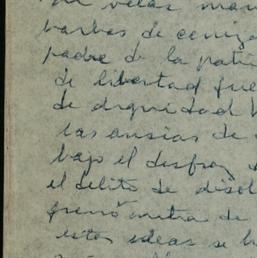 velas
barbas de ceniza
padre de la patri
de libertad fue
de dignidad h
las ansias de
bajo el disfraz
el delito de disol
de
estas ideas se h